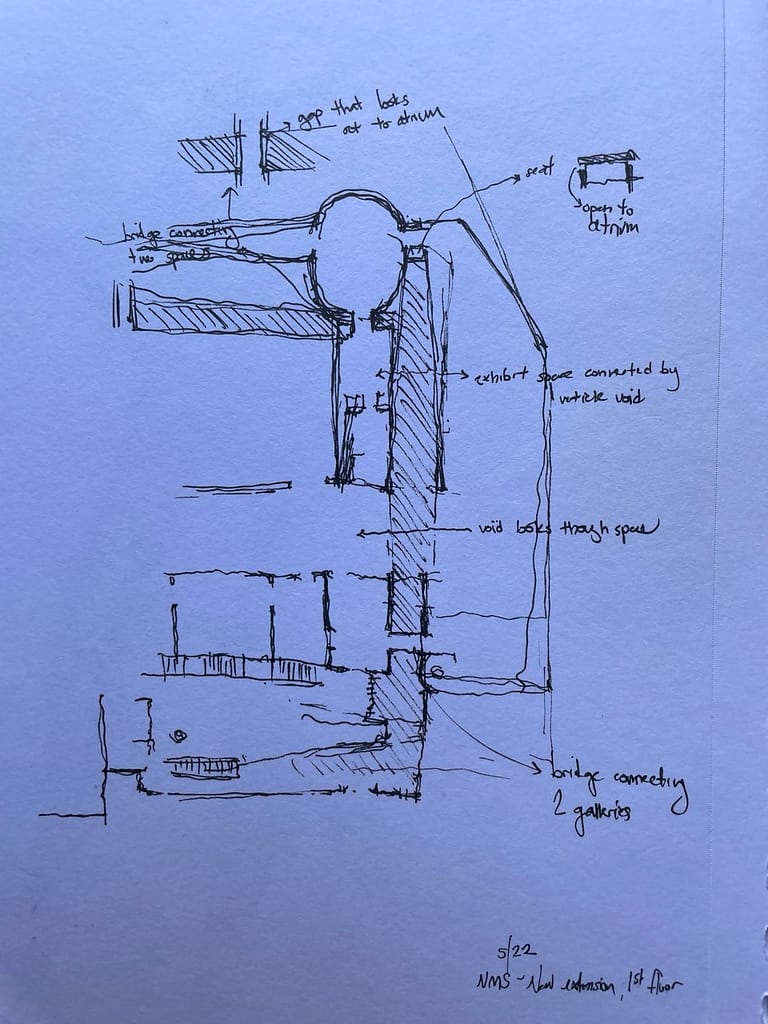 gap that looks
out to atrium
seat
open to
atrium
bridge connecting
two spaces
exhibit space connected by
verticle void
void looks though space
bridge connecting
2 galleries
5/22
NMS - New extension, 1st floor